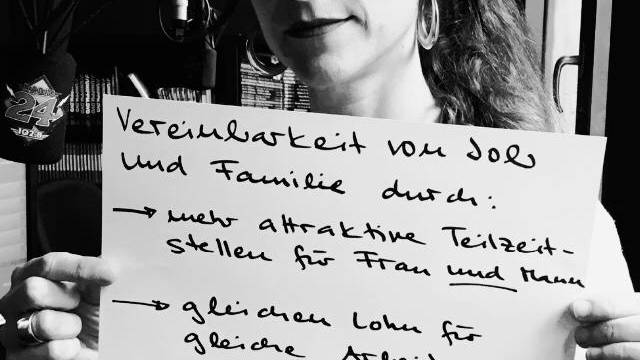 24
102.8
Vereinbarkeit von Job
und Familie durch:
→ mehr attraktive Teilzeit-
stellen für Frau und Mann
→ gleichen Lohn für
gleiche Arbeit